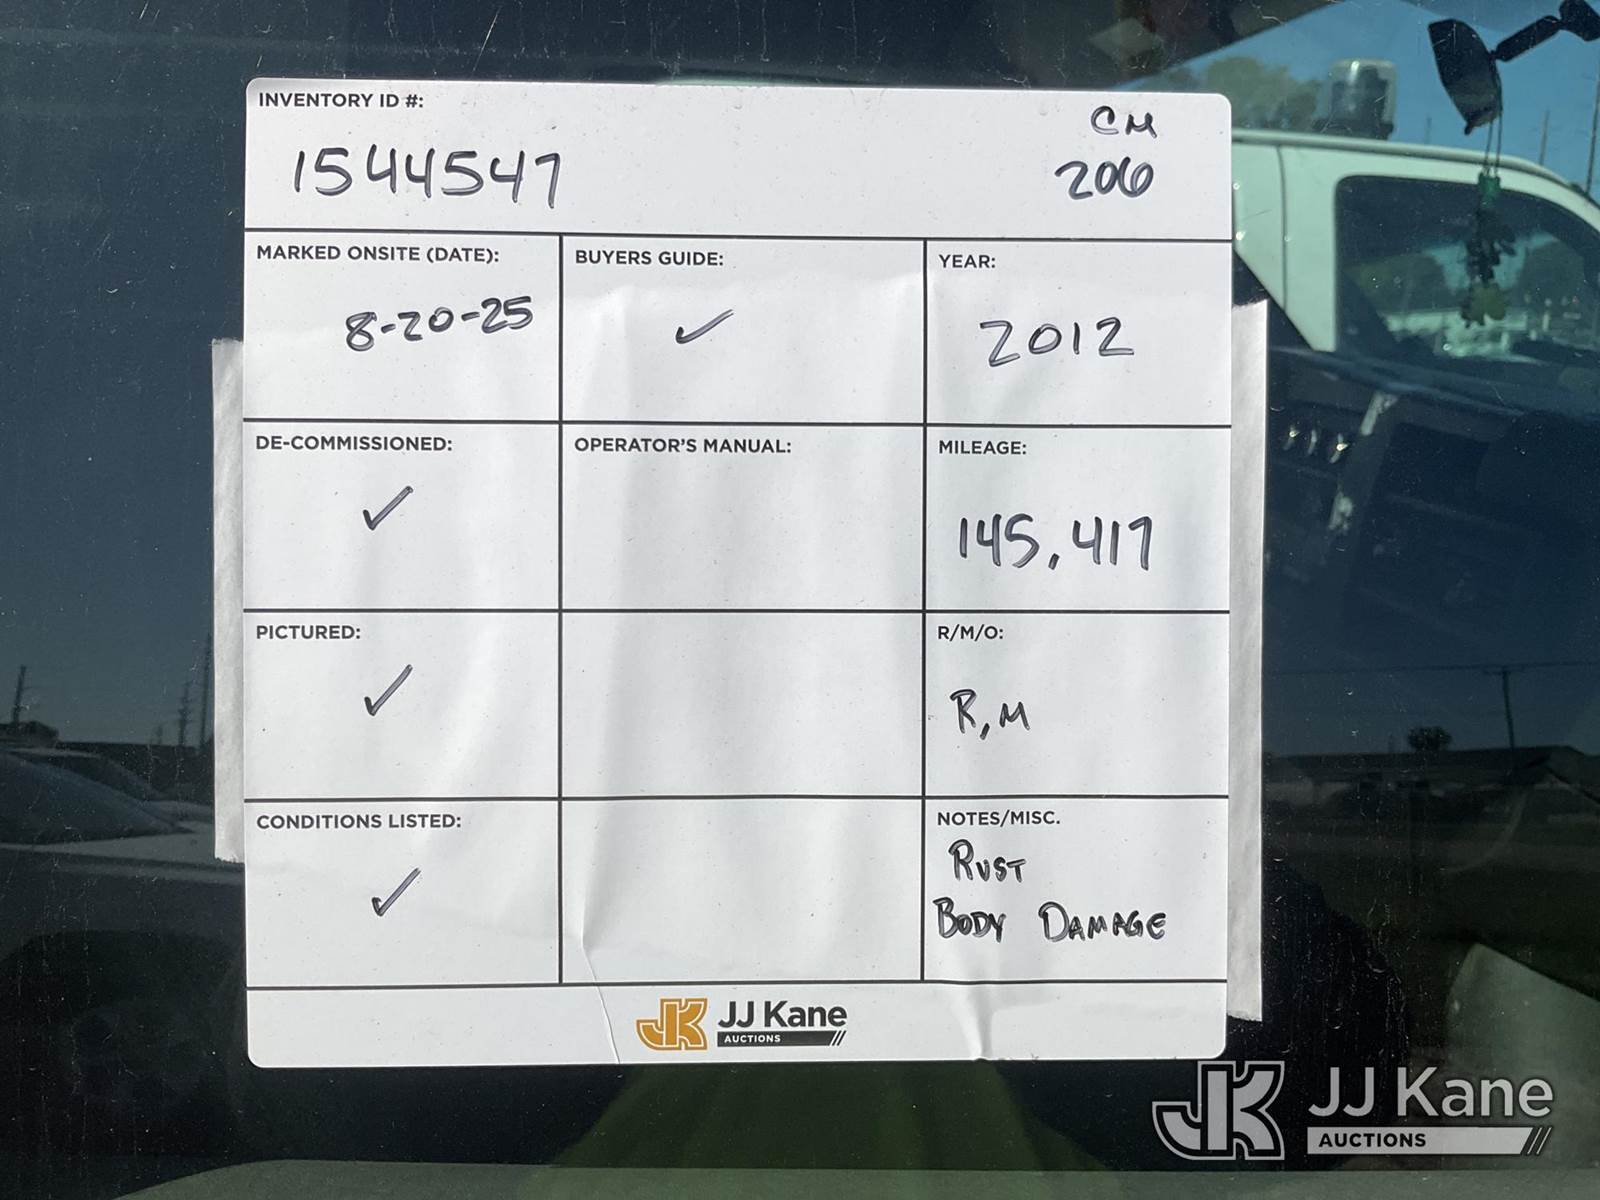 INVENTORY ID #:
CM
1544547
206
MARKED ONSITE (DATE):
8-20-25
BUYERS GUIDE:
✓
YEAR:
2012
DE-COMMISSIONED:
✓
OPERATOR'S MANUAL:
MILEAGE:
145,417
PICTURED:
✓
R/M/O:
R,M
CONDITIONS LISTED:
✓
NOTES/MISC.
RUST
BODY DAMAGE
JK JJ Kane
AUCTIONS
JK JJ Kane
AUCTIONS